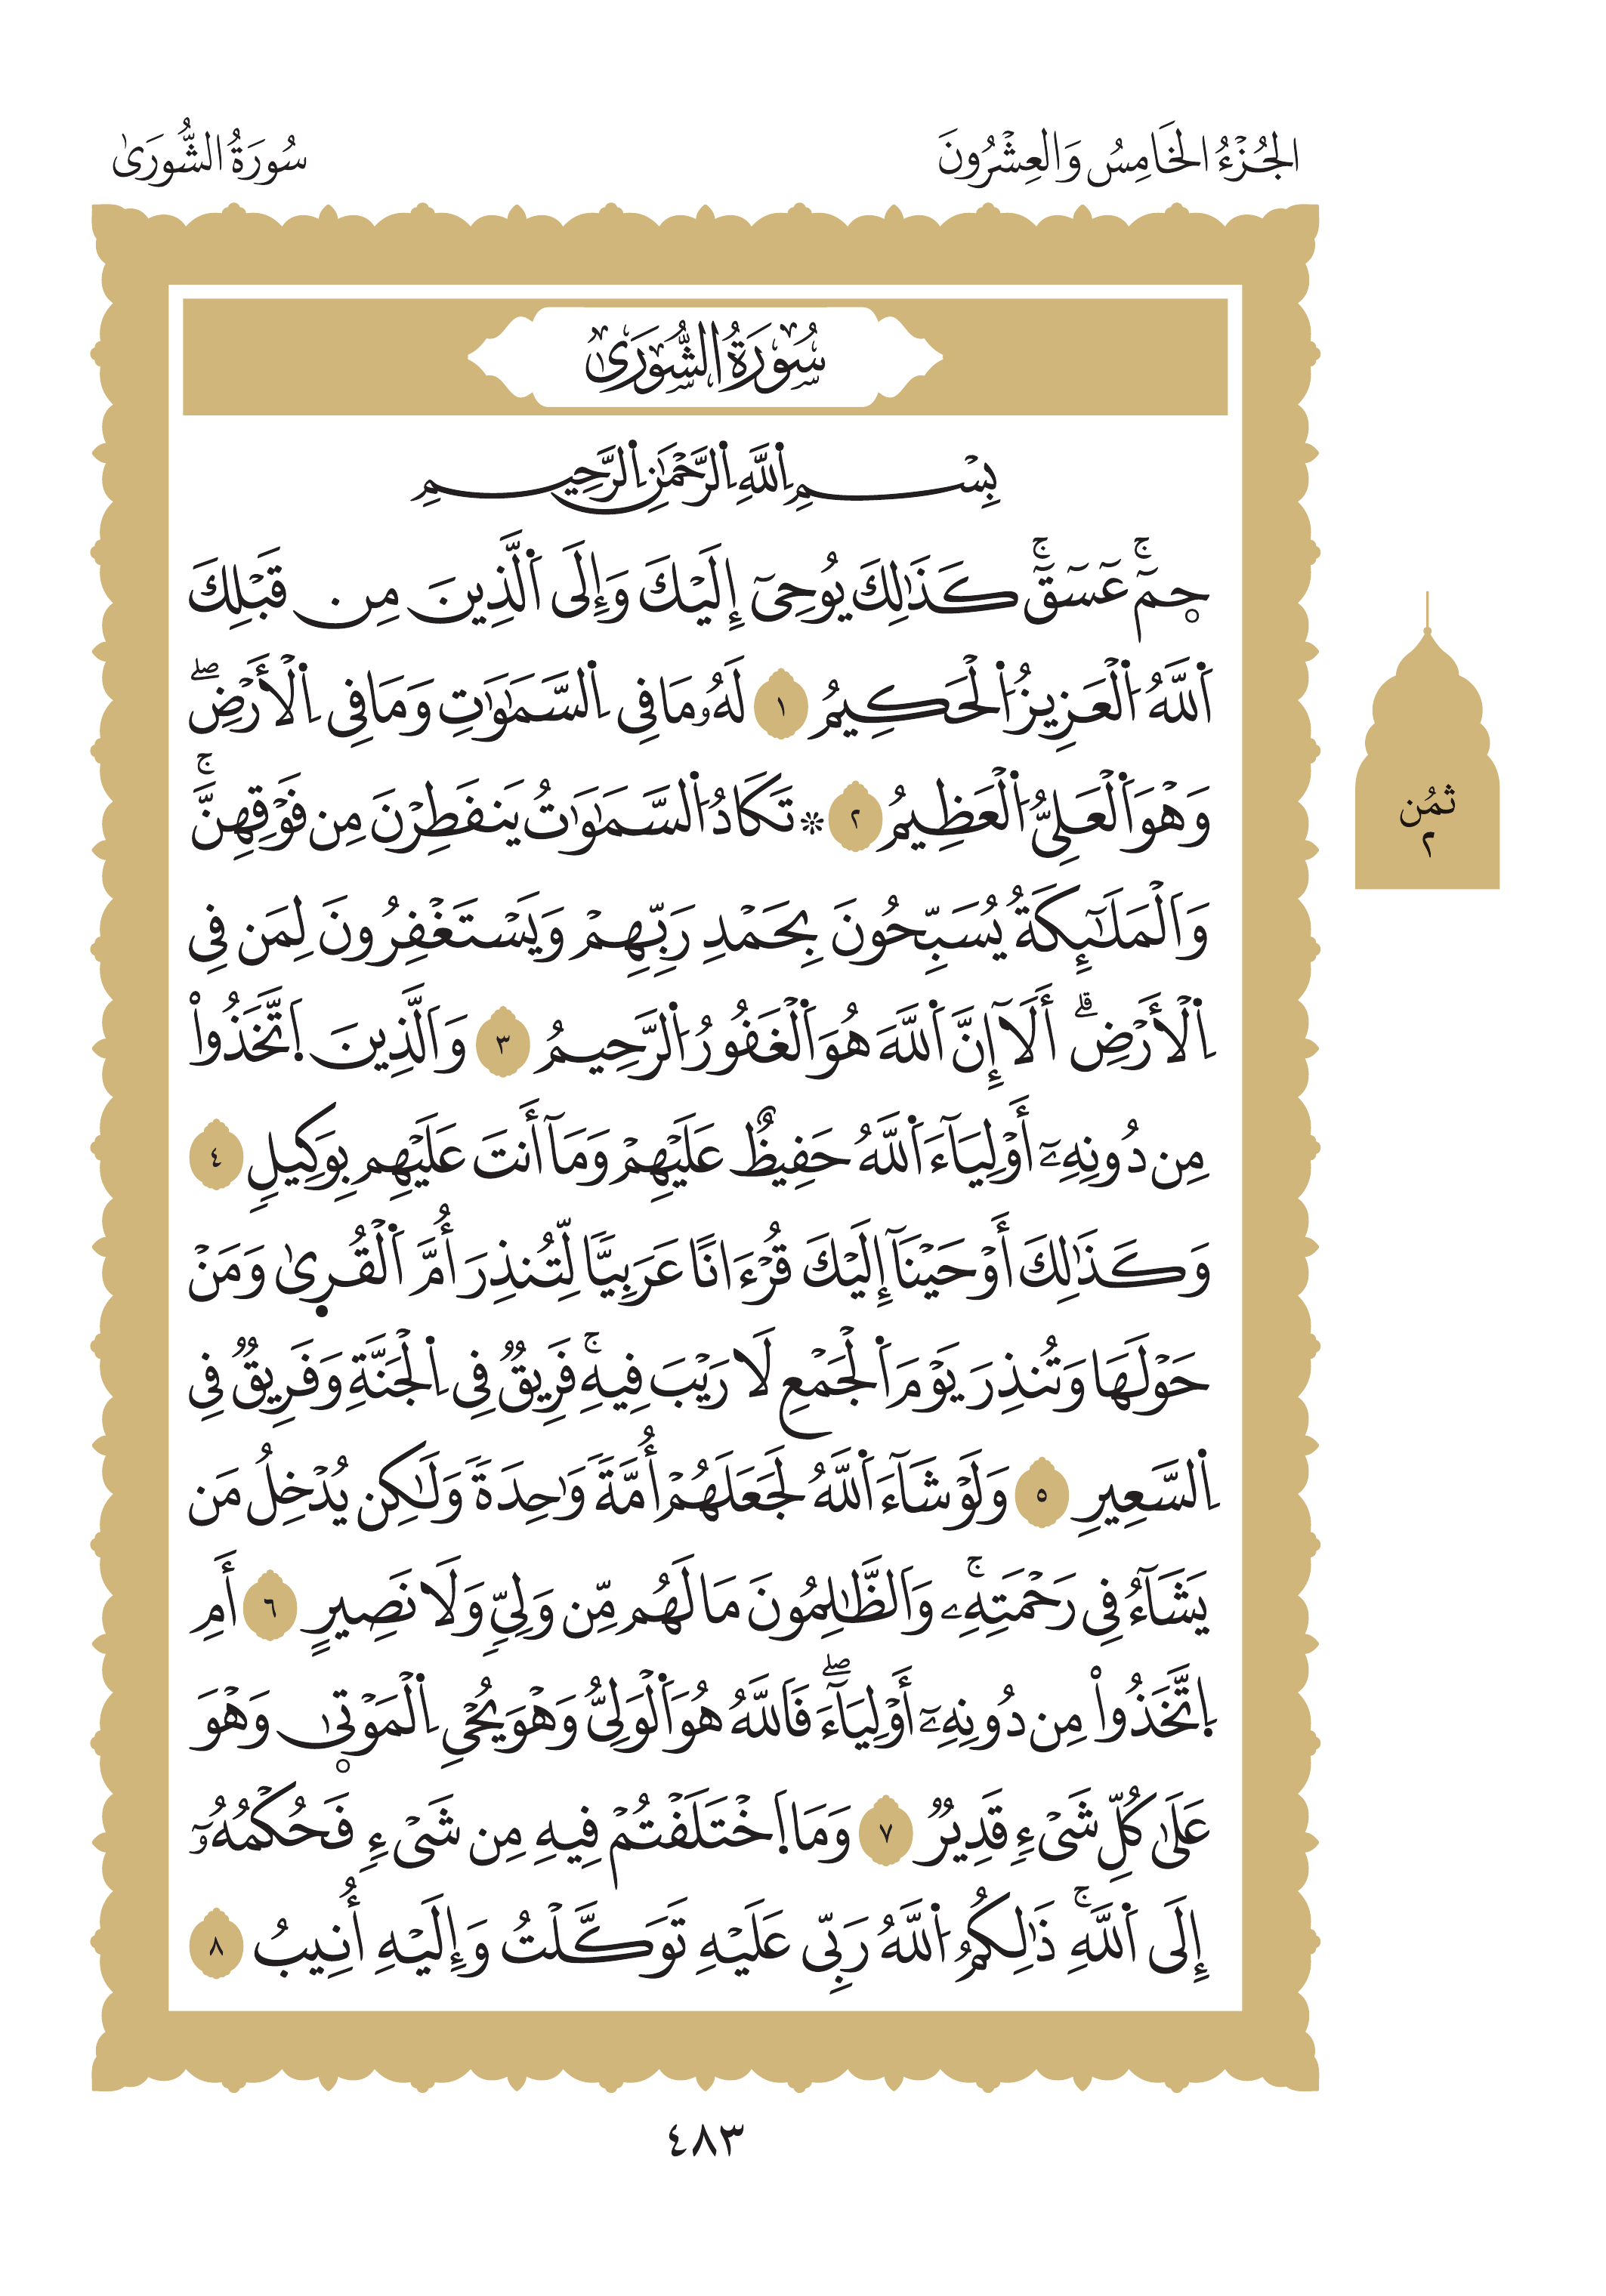 الجُزْءُ الخَامِسُ وَالعِشْرُونَ
سُورَةُ الشُّورَىٰ
سُورَةُ الشُّورَىٰ
بِسْمِ اِ۬للَّهِ اِ۬لرَّحْمَٰنِ اِ۬لرَّحِيمِ
حٓمِٓۚ عٓسٓقٓۚ كَذَٰلِكَ يُوحِىٓ إِلَيْكَ وَإِلَى اَ۬لَّذِينَ مِن قَبْلِكَ
اَ۬للَّهُ اُ۬لْعَزِيزُ اُ۬لْحَكِيمُ ١ لَهُۥ مَا فِى اِ۬لسَّمَٰوَٰتِ وَمَا فِى اِ۬لْأَرْضِۖ
وَهْوَ اَ۬لْعَلِىُّ اُ۬لْعَظِيمُ ٢ ۞ تَكَادُ اُ۬لسَّمَٰوَٰتُ يَنفَطِرْنَ مِن فَوْقِهِنَّۚ
وَالْمَلَٰٓئِكَةُ يُسَبِّحُونَ بِحَمْدِ رَبِّهِمْ وَيَسْتَغْفِرُونَ لِمَن فِى
اِ۬لْأَرْضِۗ أَلَآ إِنَّ اَ۬للَّهَ هُوَ اَ۬لْغَفُورُ اُ۬لرَّحِيمُ ٣ وَالَّذِينَ اَ۪تَّخَذُواْ
مِن دُونِهِۦٓ أَوْلِيَآءَ اَ۬للَّهُ حَفِيظٌ عَلَيْهِمْ وَمَآ أَنتَ عَلَيْهِم بِوَكِيلٖ ٤
وَكَذَٰلِكَ أَوْحَيْنَآ إِلَيْكَ قُرْءَانًا عَرَبِيّٗا لِّتُنذِرَ أُمَّ اَ۬لْقُر۪ىٰ وَمَنْ
حَوْلَهَا وَتُنذِرَ يَوْمَ اَ۬لْجَمْعِ لَا رَيْبَ فِيهِۚ فَرِيقٞ فِى اِ۬لْجَنَّةِ وَفَرِيقٞ فِى
اِ۬لسَّعِيرِ ٥ وَلَوْ شَآءَ اَ۬للَّهُ لَجَعَلَهُمْ أُمَّةٗ وَٰحِدَةٗ وَلَٰكِن يُدْخِلُ مَن
يَشَآءُ فِى رَحْمَتِهِۦۚ وَالظَّٰلِمُونَ مَا لَهُم مِّن وَلِىّٖ وَلَا نَصِيرٍ ٦ أَمِ
اِ۪تَّخَذُواْ مِن دُونِهِۦٓ أَوْلِيَآءَۖ فَاللَّهُ هُوَ اَ۬لْوَلِىُّ وَهْوَ يُحْىِ اِ۬لْمَوْت۪ىٰ وَهْوَ
عَلَىٰ كُلِّ شَىْءٖ قَدِيرٞ ٧ وَمَا اَ۪خْتَلَفْتُمْ فِيهِ مِن شَىْءٖ فَحُكْمُهُۥٓ
إِلَى اَ۬للَّهِۚ ذَٰلِكُمُ اُ۬للَّهُ رَبِّى عَلَيْهِ تَوَكَّلْتُ وَإِلَيْهِ أُنِيبُ ٨
ثُمُن
٢
٤٨٣